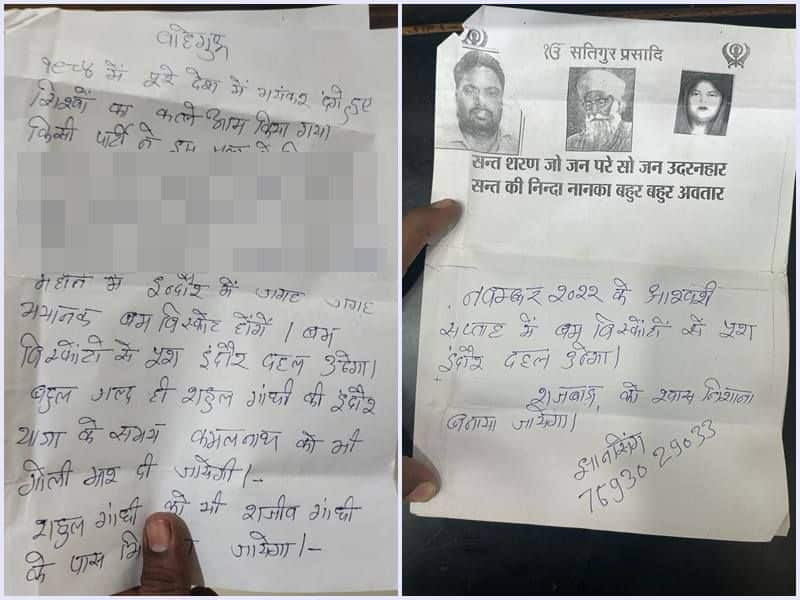 वाहेगुरू
१९८४ में पूरे देश में भयंकर दंगे हुए
सिखों का कत्ले आम किया गया
किसी पार्टी ने इस
इन्दौर में जगह जगह
भयानक बम विस्फोट होंगें। बम
विस्फोटों से पूरा इंदौर दहल उठेगा।
बहुत जल्द ही राहुल गांधी की इंदौर
यात्रा के समय कमलनाथ को भी
गोली मार दी जायेगी।-
राहुल गांधी को भी राजीव गांधी
के पास जायेगा।-
ੴ सतिगुर प्रसादि
सन्त शरण जो जन परे सो जन उदरनहार
सन्त की निन्दा नानका बहुर बहुर अवतार
नवम्बर २०२२ के आखरी
सप्ताह में बम विस्फोटों से पूरा
इंदौर दहल उठेगा।
राजबाड़ा को खास निशाना
बनाया जायेगा।
ज्ञानसिंग
76930 29033